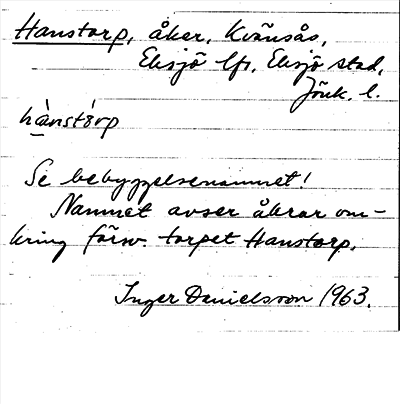 Hanstorp, åker, Kvänsås,
Eksjö lfs, Eksjö stad,
Jönk. l.
hànstòrp
Se bebyggelsenamnet!
Namnet avser åkrar om-
kring försv. torpet Hanstorp.
Inger Danielsson 1963.